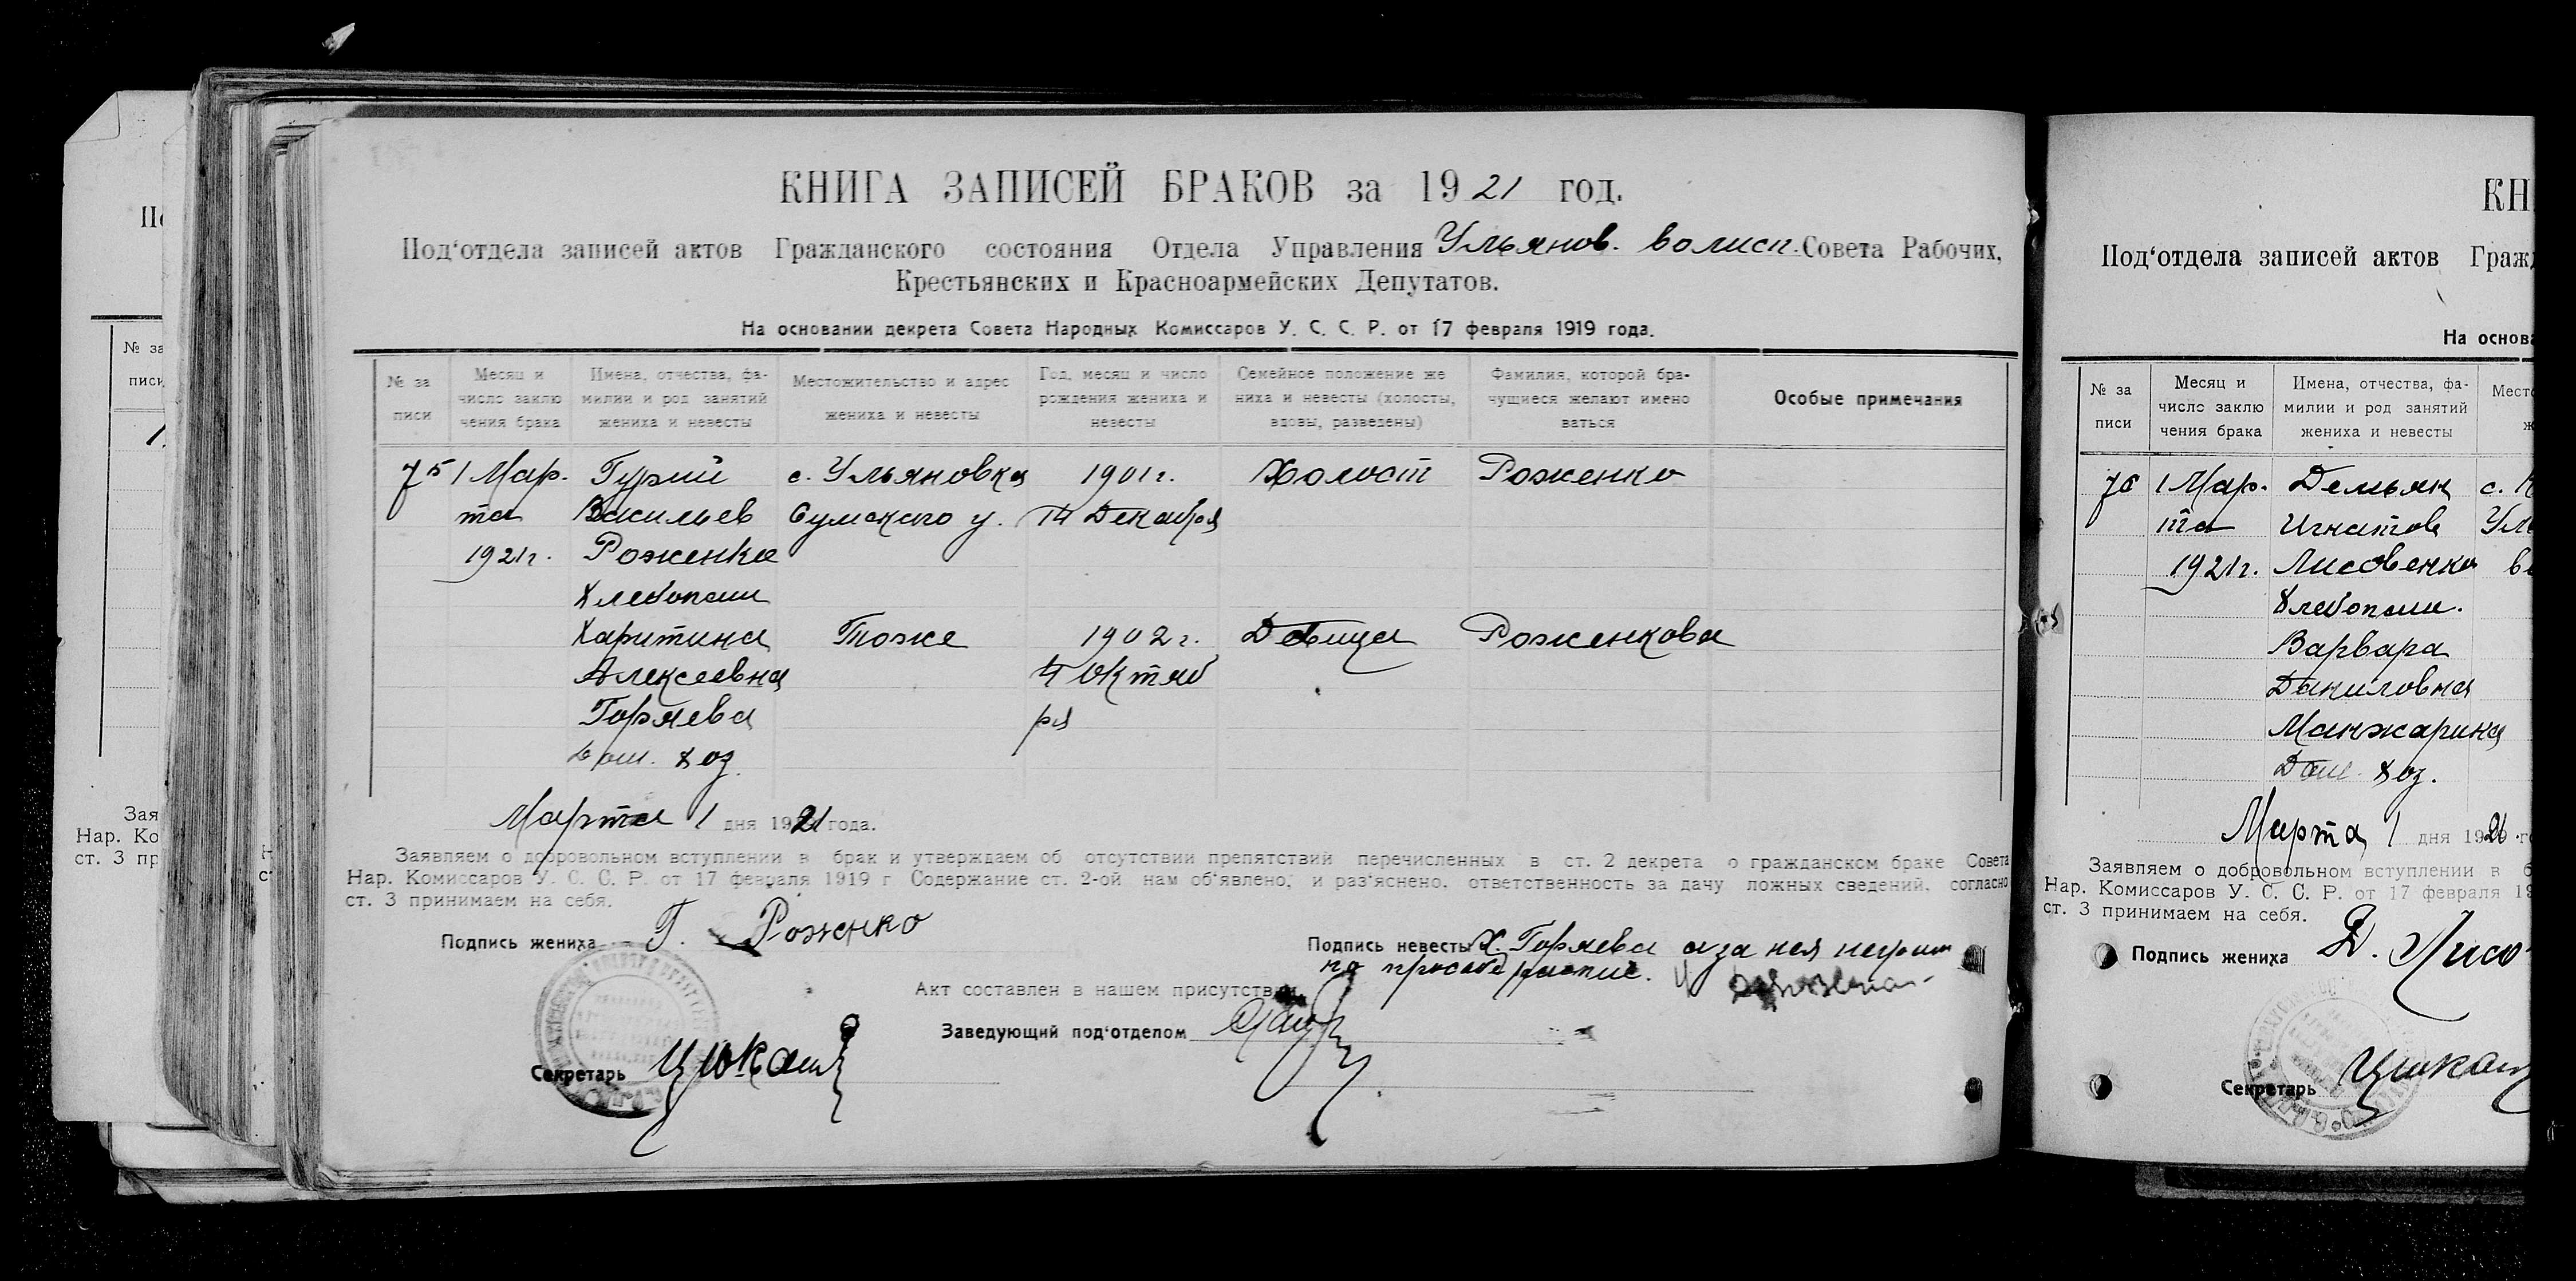 КНИГА ЗАПИСЕЙ БРАКОВ за 1921 год.
Под‘отдела записей актов Гражданского состояния Отдела Управления Ульянов. волисп. Совета Рабочих,
Крестьянских и Красноармейских Депутатов.
На основании декрета Совета Народных Комиссаров У. С. С. Р. от 17 февраля 1919 года.
№ за
писи
Месяц и
число заклю
чения брака
Имена, отчества, фа-
милии и род занятий
жениха и невесты
Местожительство и адрес
жениха и невесты
Год, месяц и число
рождения жениха и
невесты
Семейное положение же
ниха и невесты (холосты,
вдовы, разведены)
Фамилия, которой бра-
чущиеся желают имено
ваться
Особые примечания
75 1 Мар- Гурий с. Ульяновка 1901 г. Холост Роженко
та Васильев Сумского у. Декабря
1921 г. Роженко
Хлебопаш
Харитина Тоже 1902 г. Девица Роженкова
Алексеевна 4 Октяб
Горяева ря
Дом. хоз.
Марта 1 дня 1921 года.
Заявляем о добровольном вступлении в брак и утверждаем об отсутствии препятствий перечисленных в ст. 2 декрета о гражданском браке Совета
Нар. Комиссаров У. С. С. Р. от 17 февраля 1919 г Содержание ст. 2-ой нам об‘явлено, и раз‘яснено, ответственность за дачу ложных сведений, согласно
ст. 3 принимаем на себя.
Подпись жениха Г. Роженко
Подпись невесты Х. Горяева а за нея неграм
по просьбе распис.
Акт составлен в нашем присутствии
Заведующий под‘отделом
Секретарь
КН
Под‘отдела записей актов Гражд
На основа
№ за
писи
Месяц и
число заклю
чения брака
Имена, отчества, фа-
милии и род занятий
жениха и невесты
Место
ж
76 1 Мар- Демьян с.
та Игнатов Уль
1921 г. Лисовенко в
Хлебопаш.
Варвара
Даниловна
Манжарина
Дом. хоз.
Марта 1 дня 1921 го
Заявляем о добровольном вступлении в б
Нар. Комиссаров У. С. С. Р. от 17 февраля 19
ст. 3 принимаем на себя.
Подпись жениха Д. Лисо
Секретарь
По
№ за
писи
Зая
Нар. Ко
ст. 3 пр